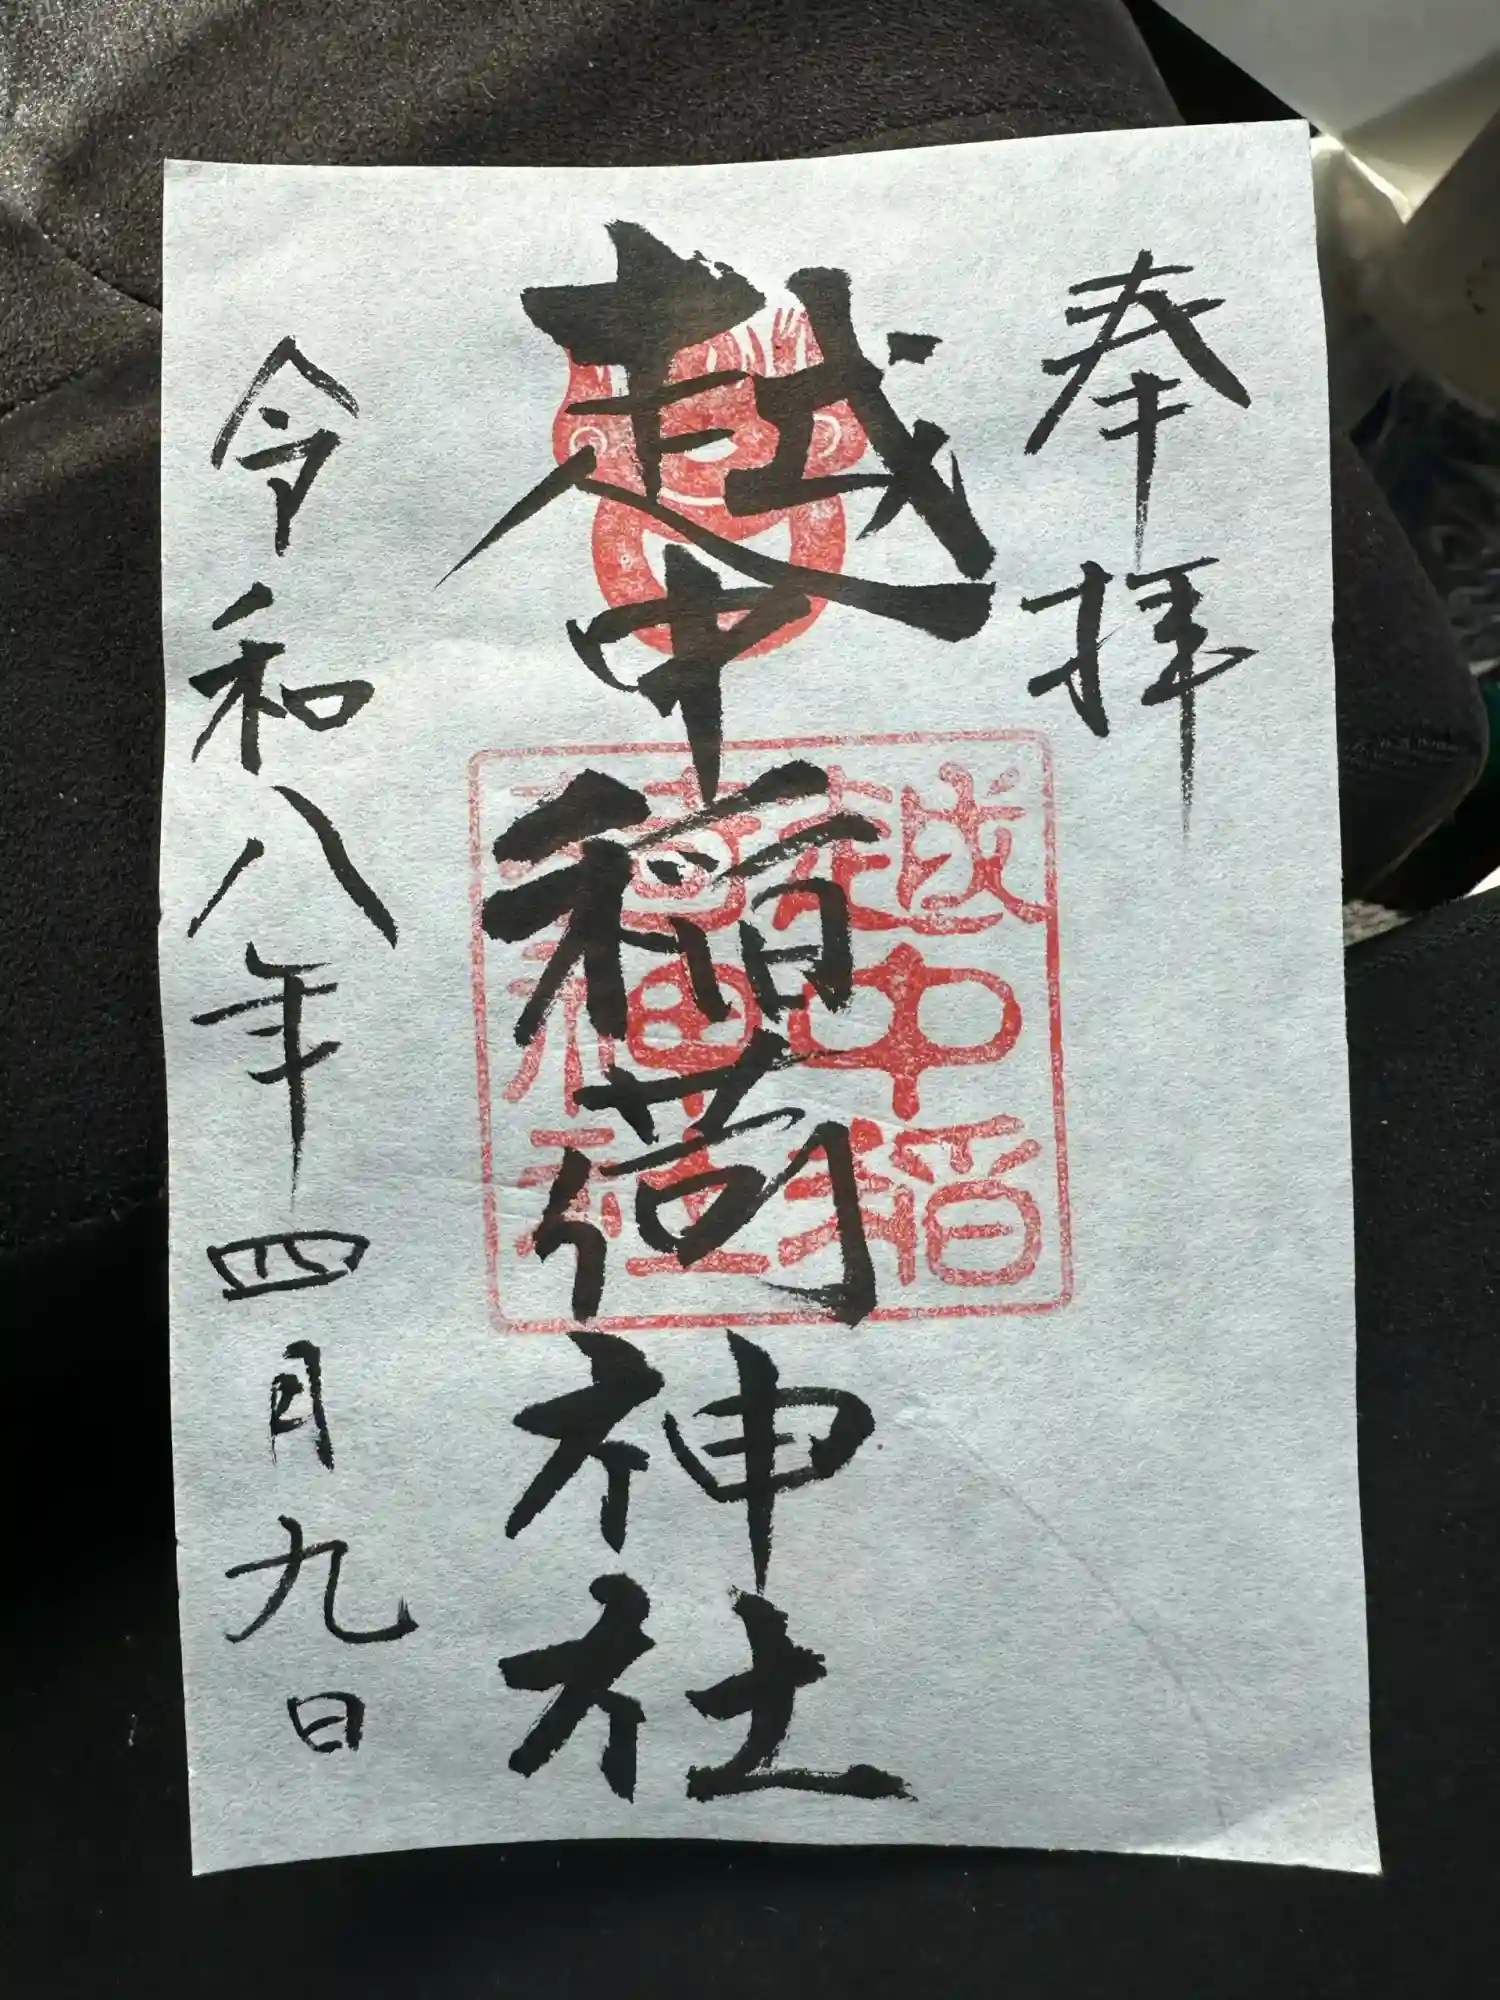 奉拝
越中稲荷神社
越中稲
荷神社
令和八年四月九日